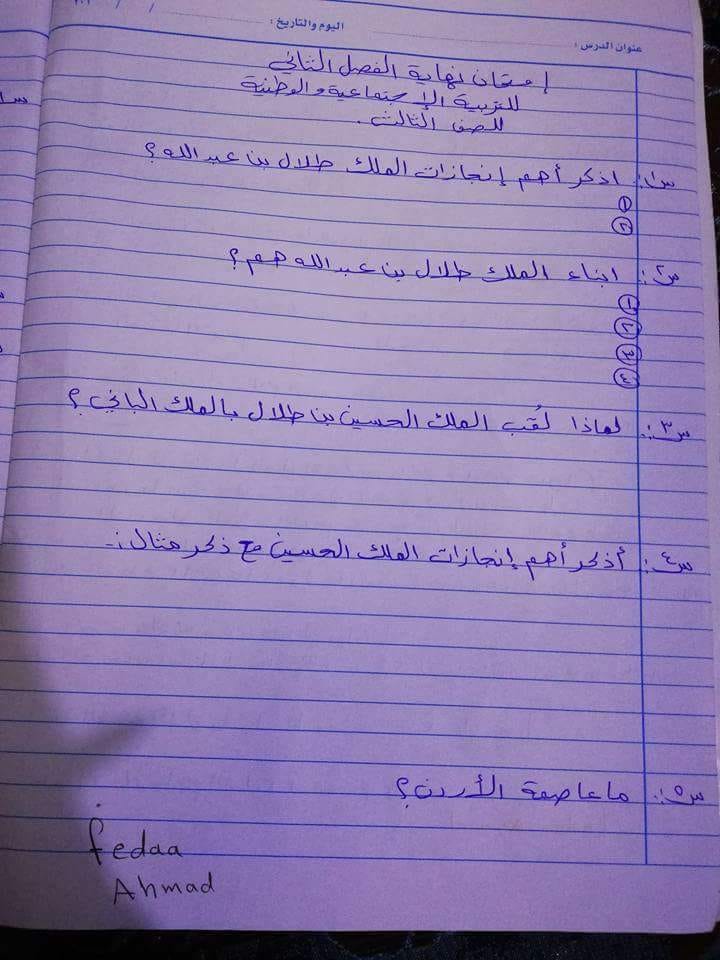 اليوم والتاريخ: / /
عنوان الدرس:
إمتحان نهاية الفصل الثاني
للتربية الإجتماعية والوطنية
للصف الثالث.
س١: اذكر أهم إنجازات الملك طلال بن عبد الله؟
①
②
س٢: ابناء الملك طلال بن عبد الله هم؟
①
②
③
④
س٣: لماذا لُقب الملك الحسين بن طلال بالملك الباني؟
س٤: أذكر أهم إنجازات الملك الحسين مع ذكر مثال:-
س٥: ما عاصمة الأردن؟
fedaa
Ahmad